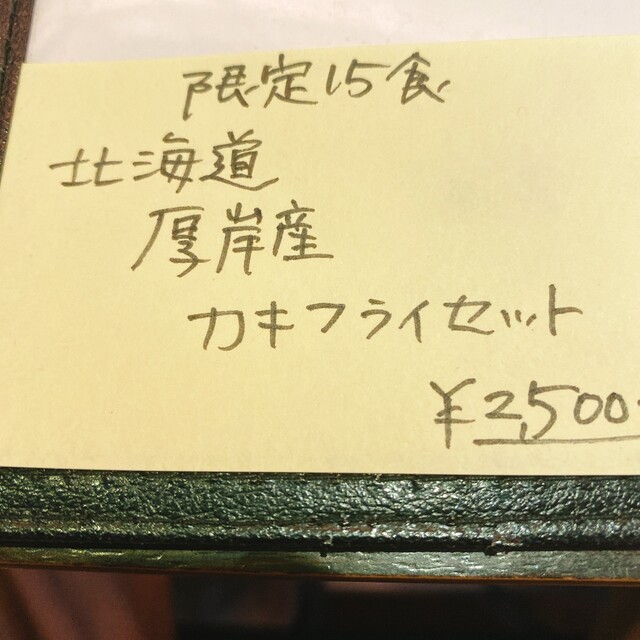 限定15食
北海道
厚岸産
カキフライセット
¥2,500-